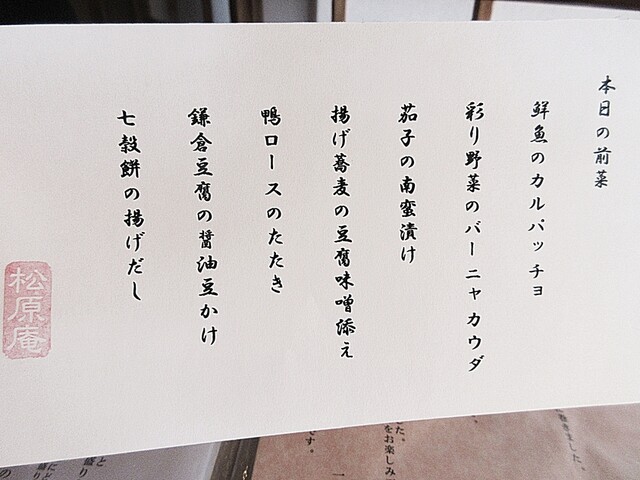 本日の前菜
鮮魚のカルパッチョ
彩り野菜のバーニャカウダ
茄子の南蛮漬け
揚げ蕎麦の豆腐味噌添え
鴨ロースのたたき
鎌倉豆腐の醤油豆かけ
七穀餅の揚げだし
松原庵
巻きました。
をお楽しみ
した。
です。